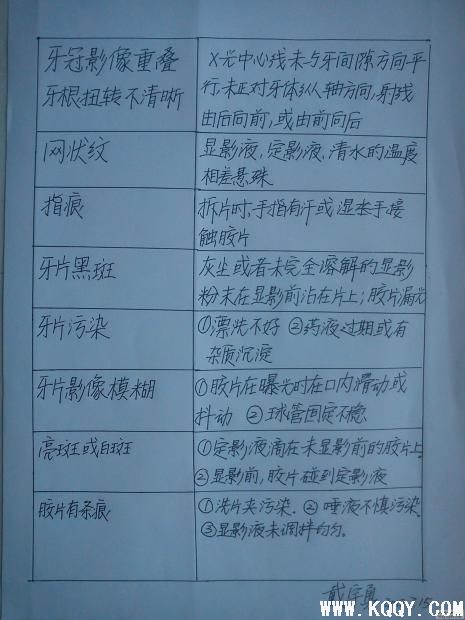 牙冠影像重叠
牙根扭转不清晰
X光中心线未与牙间隙方向平
行,未正对牙体纵轴方向,射线
由后向前,或由前向后
网状纹
显影液,定影液,清水的温度
相差悬殊
指痕
拆片时,手指有汗或湿水手接
触胶片
牙片黑斑
灰尘或者未完全溶解的显影
粉末在显影前沾在片上;胶片漏光
牙片污染
①漂洗不好 ②药液过期或有
杂质沉淀
牙片影像模糊
①胶片在曝光时在口内滑动或
抖动 ②球管固定不稳
亮斑或白斑
①定影液滴在未显影前的胶片上
②显影前,胶片碰到定影液
胶片有条痕
①洗片夹污染. ②唾液不慎污染
③显影液未调拌均匀。
WWW.KQQY.COM